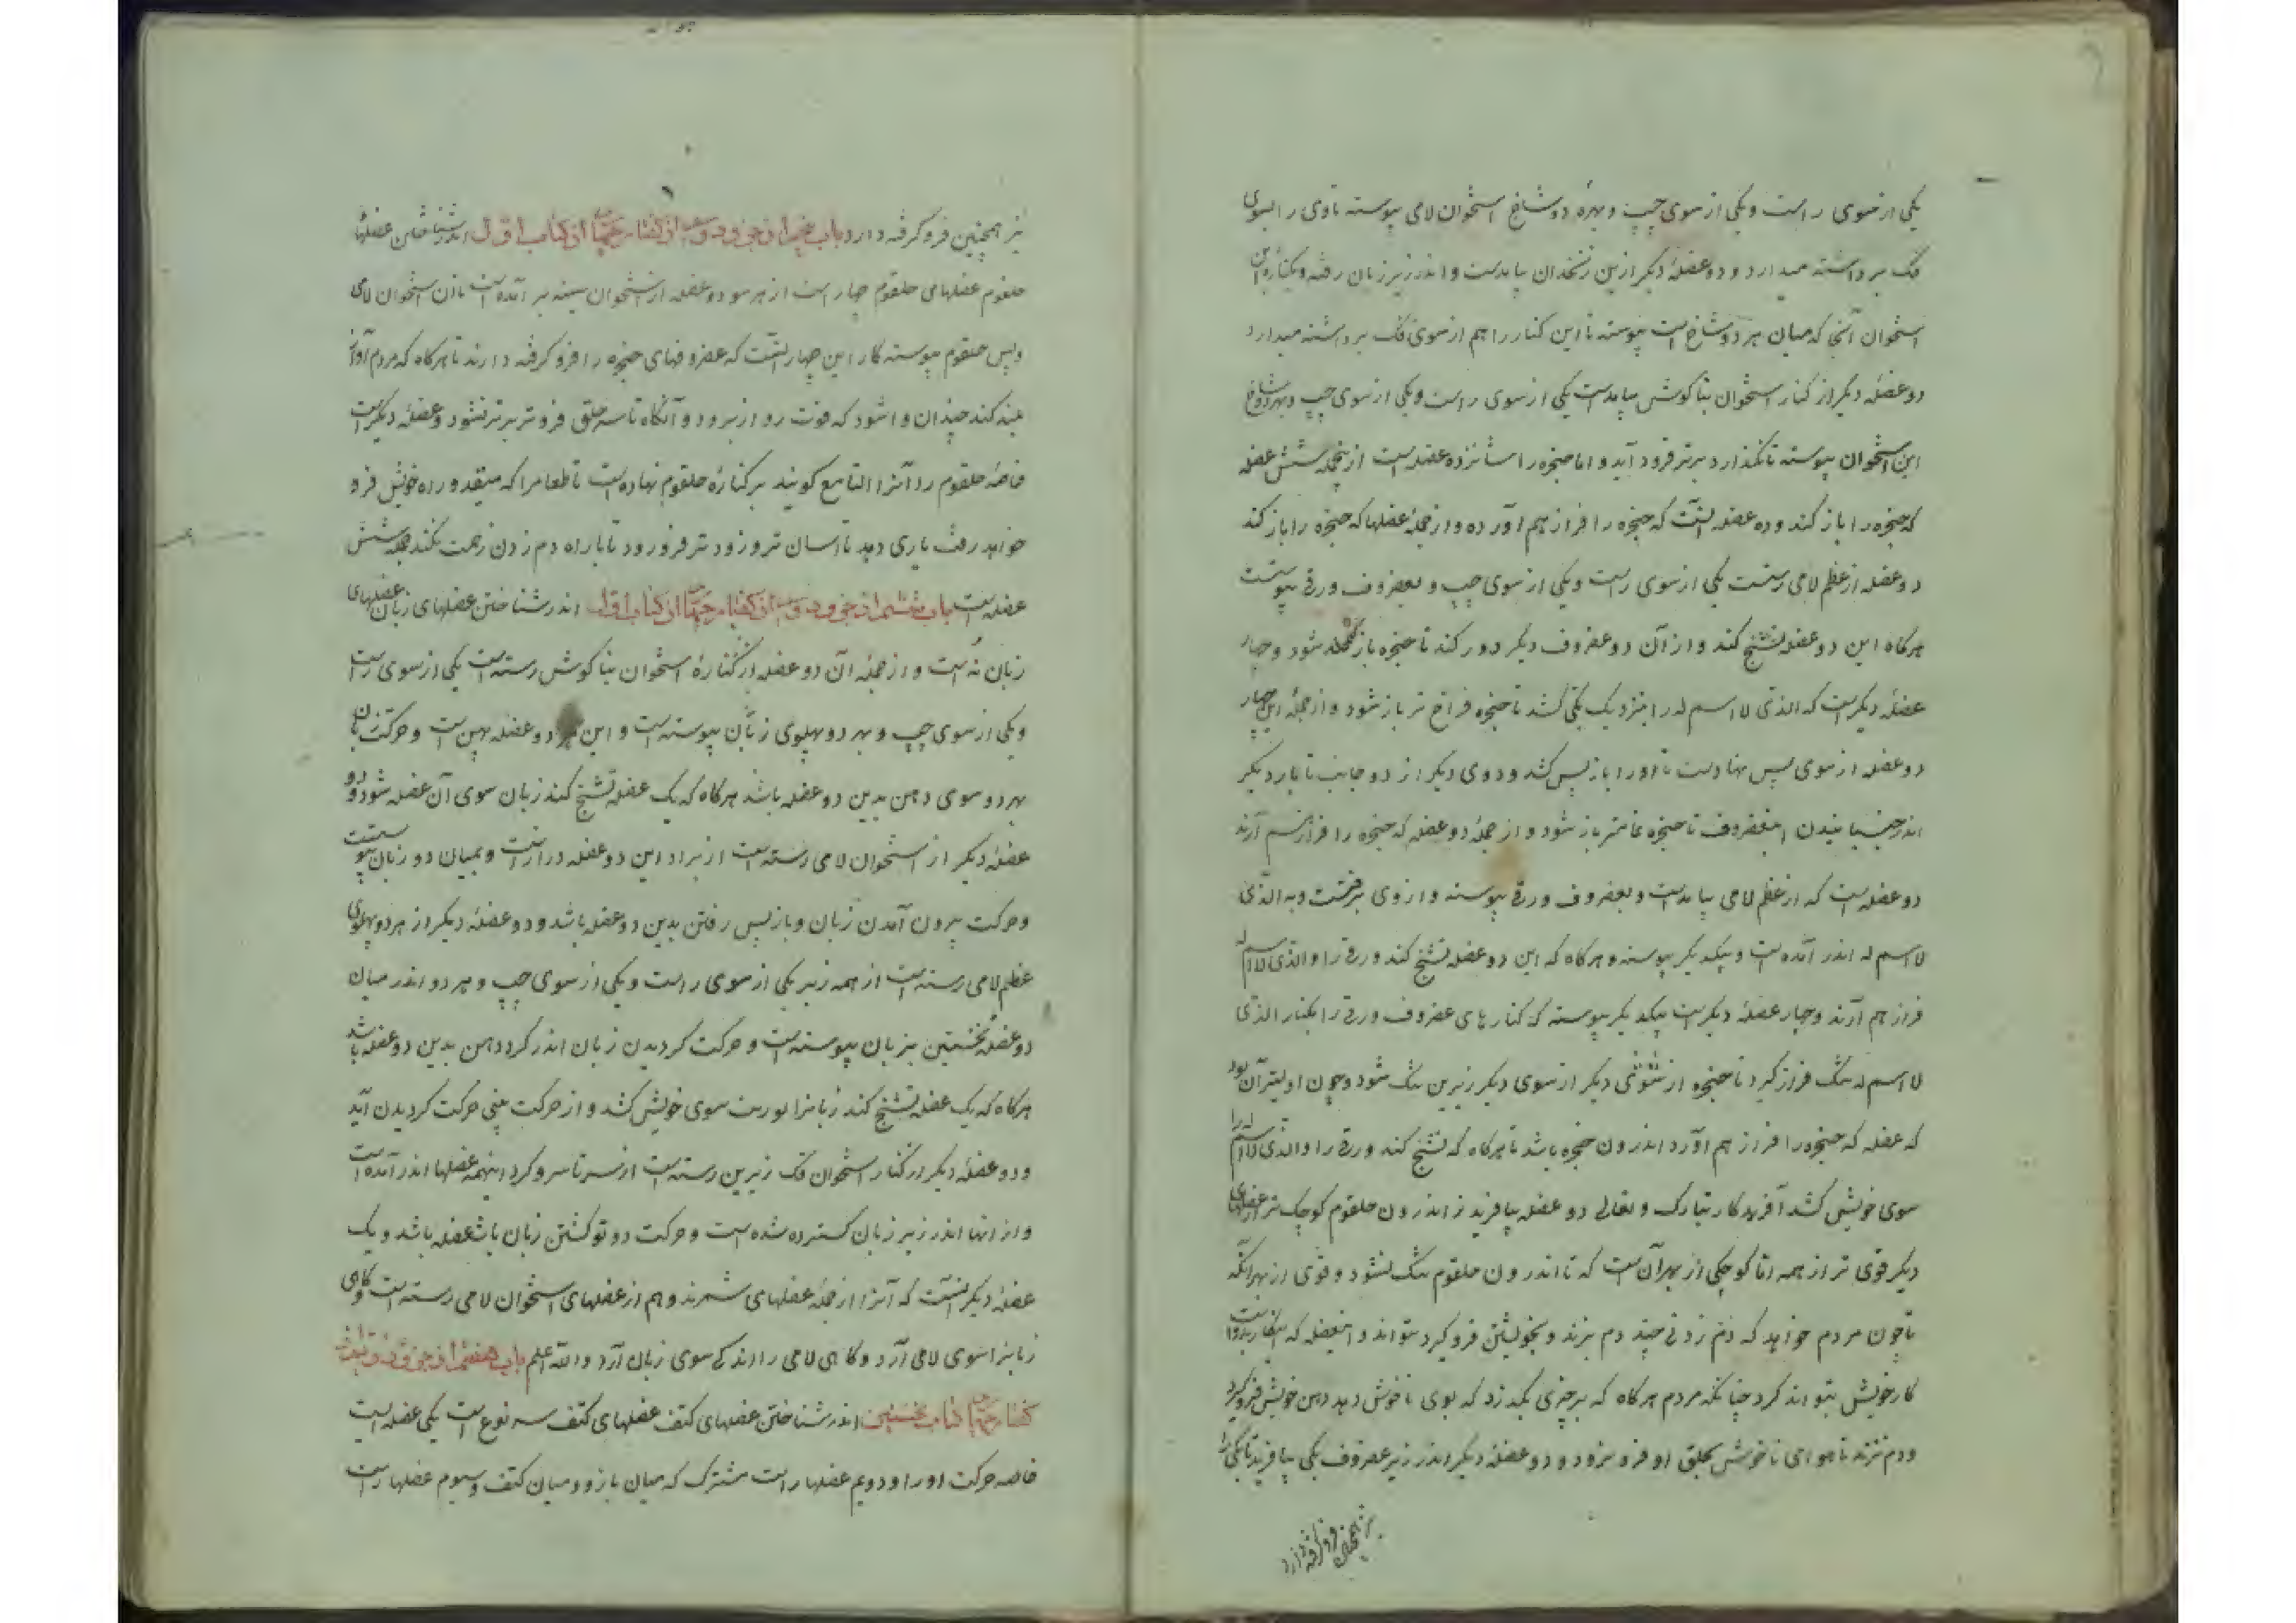 یکی از سوی راست و یکی از سوی چپ و بهره دو شاخ استخوان لامی پیوسته تا وی را بسوی
فک برداشته میدارد و دو عضلهٔ دیگر ازین زنخدان بیامدست و اندر زیر زبان رفته و بکنارهٔ این
استخوان آنجا که میان هر دو شاخ است پیوسته تا این کنار را هم از سوی فک برداشته میدارد
دو عضلهٔ دیگر از کنار استخوان بناکوش بیامدست یکی از سوی راست و یکی از سوی چپ و بهر دو شاخ
این استخوان پیوسته تا نگذارد برتر فرود آید و اما حنجره را شانزده عضله است ازینجمله شش عضله
که حنجره را باز کند و ده عضله آنست که حنجره را فراز هم آورده و از جملهٔ عضلها که حنجره را باز کند
دو عضله از عظم لامی رستست یکی از سوی راست و یکی از سوی چپ و بغضروف ورقی پیوستست
هرگاه این دو عضله تشنج کند و از آن دو غضروف دیگر دور کند تا حنجره باز شود و چهار
عضلهٔ دیگرست که الذی لا اسم له را بنزدیک یکی کشد تا حنجره فراخ تر باز شود و از جملهٔ این چهار
دو عضله از سوی پس نهادست تا او را باز پس کشد و دوی دیگر از دو جانب تا یار دیگر
اندر جنبانیدن اینغضروف تا حنجره تمامتر باز شود و از جملهٔ دو عضله که حنجره را فراز هم آرند
دو عضله است که از عظم لامی بیامدست و بغضروف ورقی پیوسته و از وی برگشت و به الذی
لا اسم له اندر آمده است و بیکدیگر پیوسته و هرگاه که این دو عضله تشنج کند ورقی را و الذی لا اسم له
فراز هم آرند و چهار عضلهٔ دیگرست بیکدیگر پیوسته که کنارهای غضروف ورقی را بکنار الذی
لا اسم له تنگ فراز گیرد تا حنجره از سوی دیگر زیرین تنگ شود و چون اولیتر آن بود
که عضله که حنجره را فراز هم آورد اندرون حنجره باشد تا هرگاه که تشنج کند ورقی را و الذی لا اسم له را
سوی خویش کشد آفریدکار تبارک و تعالی دو عضله بیافرید از اندرون حلقوم کوچک تر از عضلهای
دیگر قوی تر از همه اما کوچکی از بهر آن است که تا اندرون حلقوم تنگ نشود و قوی از بهر آنکه
تا چون مردم خواهد که دم زدنی چند دم نزند و بخویشتن فرو گیرد بتواند و اینعضله که
کار خویش بتواند کرد چنانکه مردم هرگاه که بر چیزی بگذرد که بوی ناخوش دهد دهن خویش فرو گیرد
و دم نزند تا هوای ناخوش بحلق او فرو نرود و دو عضلهٔ دیگر اندر زیر غضروف یکی بیافرید تا یکی را
نیز همچنین فرو گرفته دارد
نیز همچنین فرو گرفته دارد باب پنجم از جزو دوم از گفتار چهارم از کتاب اول اندر شناختن عضلهای
حلقوم عضلهای حلقوم چهار است از هر سو دو عضله از استخوان سینه بر آمده است تا آن استخوان لامی
و پس حلقوم پیوسته کار این چهار آنست که غضروفهای حنجره را فرو گرفته دارند تا هرگاه که مردم آواز
بلند کند چندان وا شود که قوت رو از برود و آنگاه تا سر حلق فروتر برتر نشود و عضلهٔ دیگر است
خاصهٔ حلقوم را آنرا التابع گویند بر کنارهٔ حلقوم نهاده است تا طعامرا که میقعد و راه خویش فرو
خواهد رفت یاری دهد تا آسان تر و زودتر فرو رود تا با راه دم زدن زحمت نکند جمله شش
عضله است باب ششم از جزو دوم از گفتار چهارم از کتاب اول اندر شناختن عضلهای زبان عضلهای
زبان نه است و از جملهٔ آن دو عضله از کنارهٔ استخوان بناکوش رسته است یکی از سوی راست
و یکی از سوی چپ و بهر دو پهلوی زبان پیوسته است و این دو عضله پهن است و حرکت زبان
بهر دو سوی دهن بدین دو عضله باشد هرگاه که یک عضله تشنج کند زبان سوی آن عضله شود و دو
عضلهٔ دیگر از استخوان لامی رسته است از برابر این دو عضله درازست و بمیان دو زبان پیوستست
و حرکت بیرون آمدن زبان و باز پس رفتن بدین دو عضله باشد و دو عضلهٔ دیگر از هر دو پهلوی
عظم لامی رسته است از همه زیر یکی از سوی راست و یکی از سوی چپ و هر دو اندر میان
دو عضله نخستین بزبان پیوسته است و حرکت گردیدن زبان اندر گرد دهن بدین دو عضله باشد
هرگاه که یک عضله تشنج کند زبانرا بوریت سوی خویش کشد و از حرکت بینی حرکت گردیدن آید
و دو عضلهٔ دیگر از کنار استخوان فک زیرین رسته است از سر تا سر و گرد اینهمه عضلها اندر آمده است
و از آنها اندر زیر زبان گسترده شده است و حرکت دو تو گشتن زبان باین عضله باشد و یک
عضلهٔ دیگر آنست که آنرا از جملهٔ عضلهای شمرند و هم از عضلهای استخوان لامی رسته است و گاهی
زبانرا سوی لامی آرد و گاهی لامی را اندکی سوی زبان آرد والله اعلم باب هفتم از جزو دوم از
گفتار چهارم کتاب نخستین اندر شناختن عضلهای کتف عضلهای کتف سه نوع است یکی عضله است
خاصه حرکت او را و دویم عضلها راست مشترک که میان بازو و میان کتف و سیوم عضلها راست